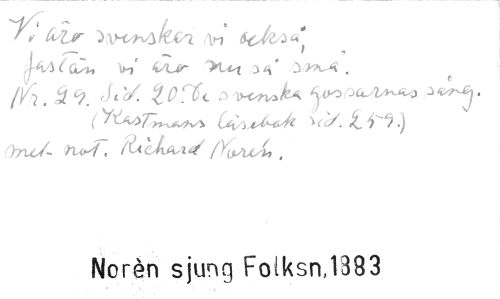 Vi äro svenskar vi också,
fastän vi äro nu så små.
Nr. 29. Sid. 20. De svenska gossarnas sång.
(Kastmans läsebok sid. 259.)
med not. Richard Norén.
Norèn sjung Folksn,1883